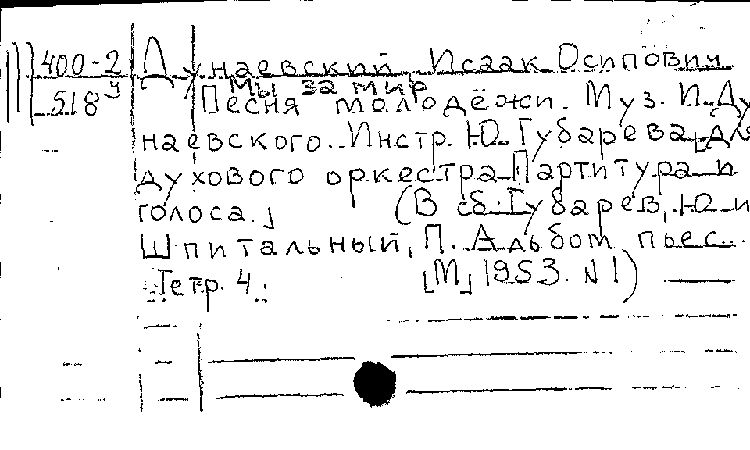 400-2 Дунаевский Исаак Осипович
518 у Мы за мир
Песня молодёжи. Муз. И. Ду
наевского. Инстр. Ю. Губарева [для
духового оркестра Партитура и
голоса.] (В сб: Губарев, Ю и
Шпитальный, П. Альбом пьес.
Тетр. 4. [М] 1953. N 1)